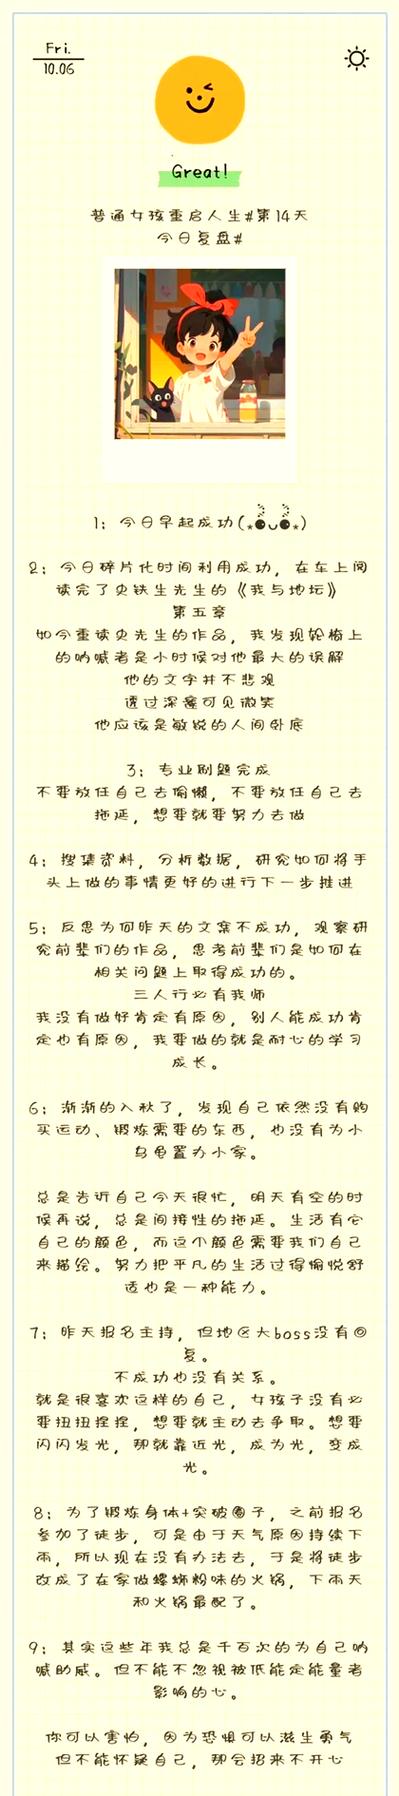 Fri.
10.06
Great!
普通女孩重启人生#第14天
今日复盘#
1：今日早起成功(⁎●∪●⁎)
2：今日碎片化时间利用成功，在车上阅
读完了史铁生先生的《我与地坛》
第五章
如今重读史先生的作品，我发现轮椅上
的呐喊者是小时候对他最大的误解
他的文字并不悲观
透过深邃可见微笑
他应该是敏锐的人间卧底
3：专业刷题完成
不要放任自己去偷懒，不要放任自己去
拖延，想要就要努力去做
4：搜集资料，分析数据，研究如何将手
头上做的事情更好的进行下一步推进
5：反思为何昨天的文案不成功，观察研
究前辈们的作品，思考前辈们是如何在
相关问题上取得成功的。
三人行必有我师
我没有做好肯定有原因，别人能成功肯
定也有原因，我要做的就是耐心的学习
成长。
6：渐渐的入秋了，发现自己依然没有购
买运动、锻炼需要的东西，也没有为小
乌龟置办小家。
总是告诉自己今天很忙，明天有空的时
候再说，总是间接性的拖延。生活有它
自己的颜色，而这个颜色需要我们自己
来描绘。努力把平凡的生活过得愉悦舒
适也是一种能力。
7：昨天报名主持，但地区大boss没有回
复。
不成功也没有关系。
就是很喜欢这样的自己，女孩子没有必
要扭扭捏捏，想要就主动去争取。想要
闪闪发光，那就靠近光，成为光，变成
光。
8：为了锻炼身体+突破圈子，之前报名
参加了徒步，可是由于天气原因持续下
雨，所以现在没有办法去，于是将徒步
改成了在家做螺蛳粉味的火锅，下雨天
和火锅最配了。
9：其实这些年我总是千百次的为自己呐
喊助威。但不能不忽视被低能定能量者
影响的心。
你可以害怕，因为恐惧可以滋生勇气
但不能怀疑自己，那会招来不开心